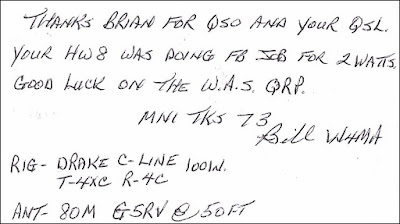 THANKS BRIAN FOR QSO AND YOUR QSL.
YOUR HW8 WAS DOING FB JOB FOR 2 WATTS.
GOOD LUCK ON THE W.A.S. QRP.
MNI TKS 73
Bill W4MA
RIG- DRAKE C-LINE 100W.
T-4XC R-4C
ANT- 80M G5RV @ 50FT